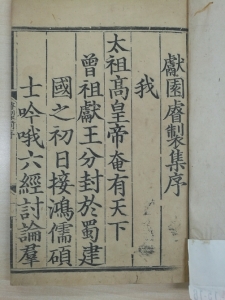 獻園睿製集序
我
太祖高皇帝奄有天下
曾祖獻王分封於蜀建
國之初日接鴻儒碩
士吟哦六經討論羣